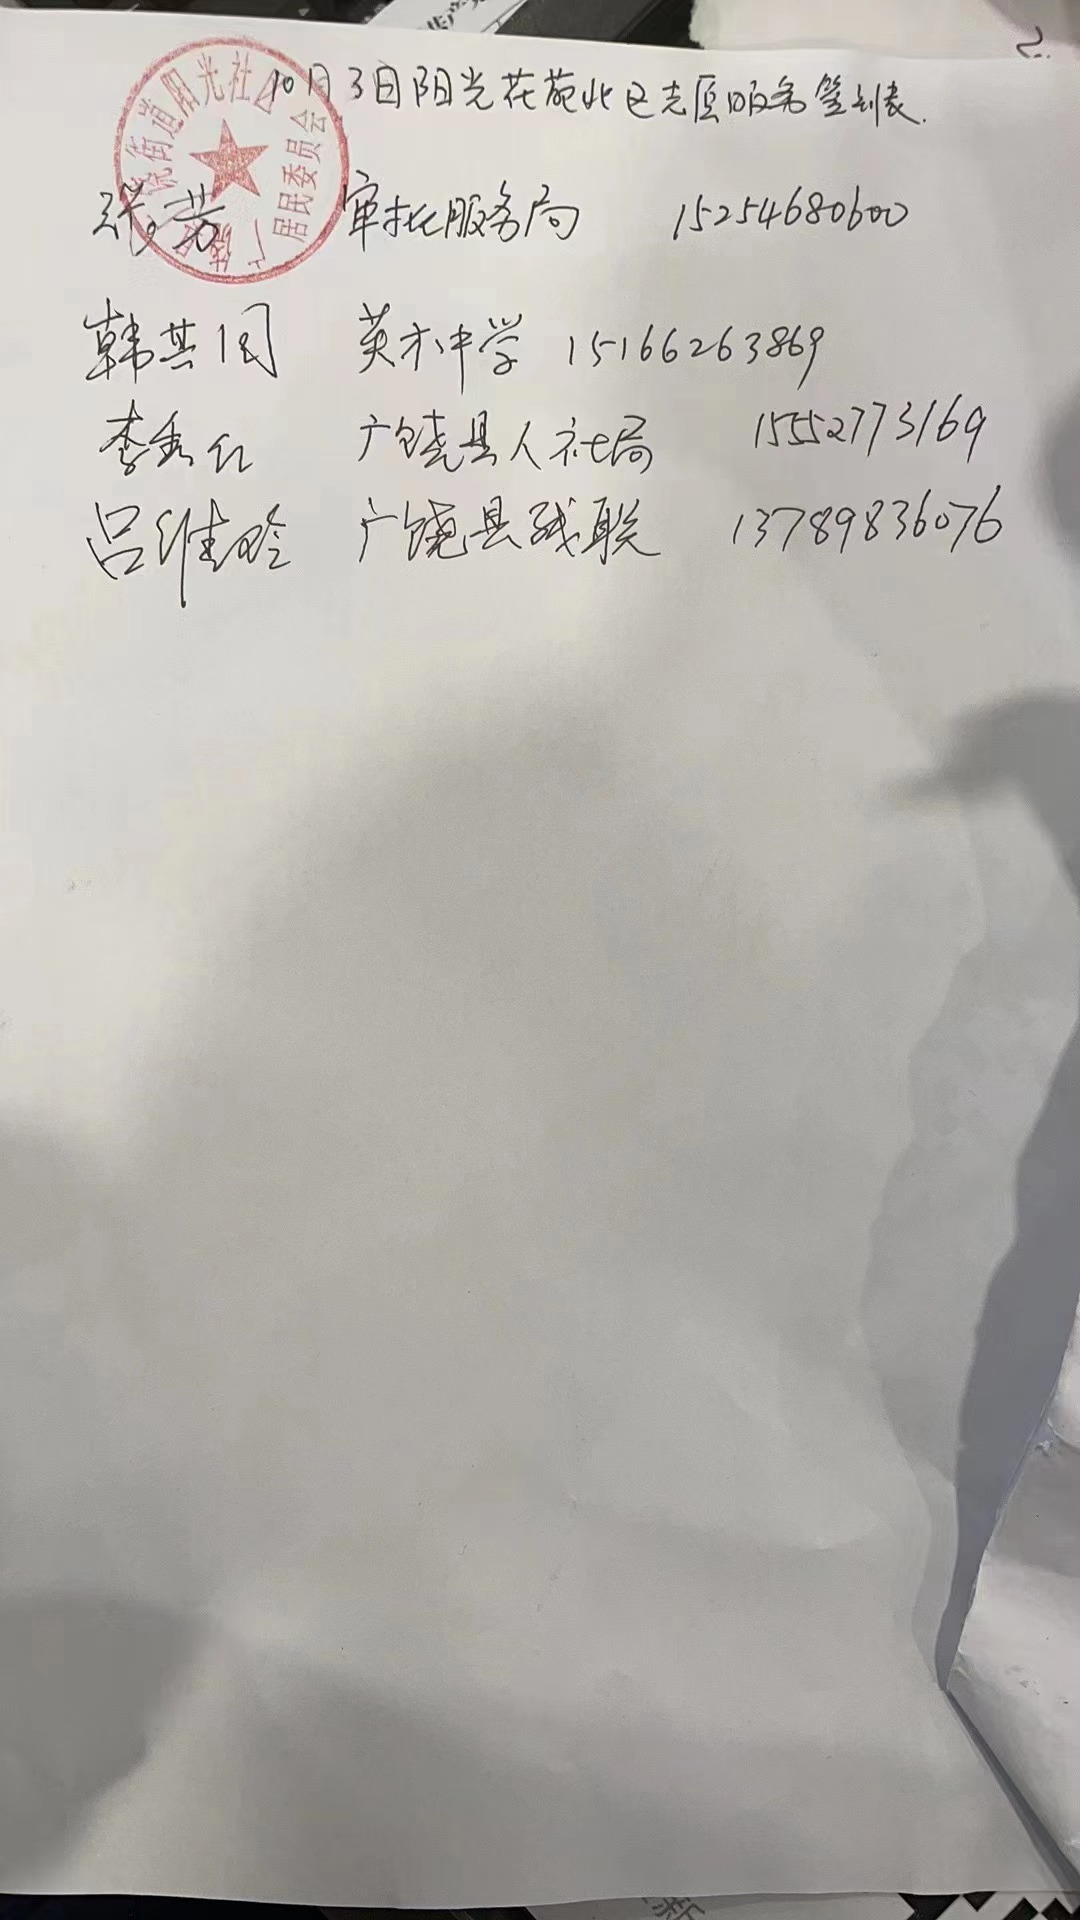 2.
10月3日阳光花苑北区志愿服务签到表.
张芳 审批服务局 15254680600
韩其国 英才中学 15166263869
李秀红 广饶县人社局 15552773169
吕维玲 广饶县残联 13789836076
街道阳光社区
居民委员会